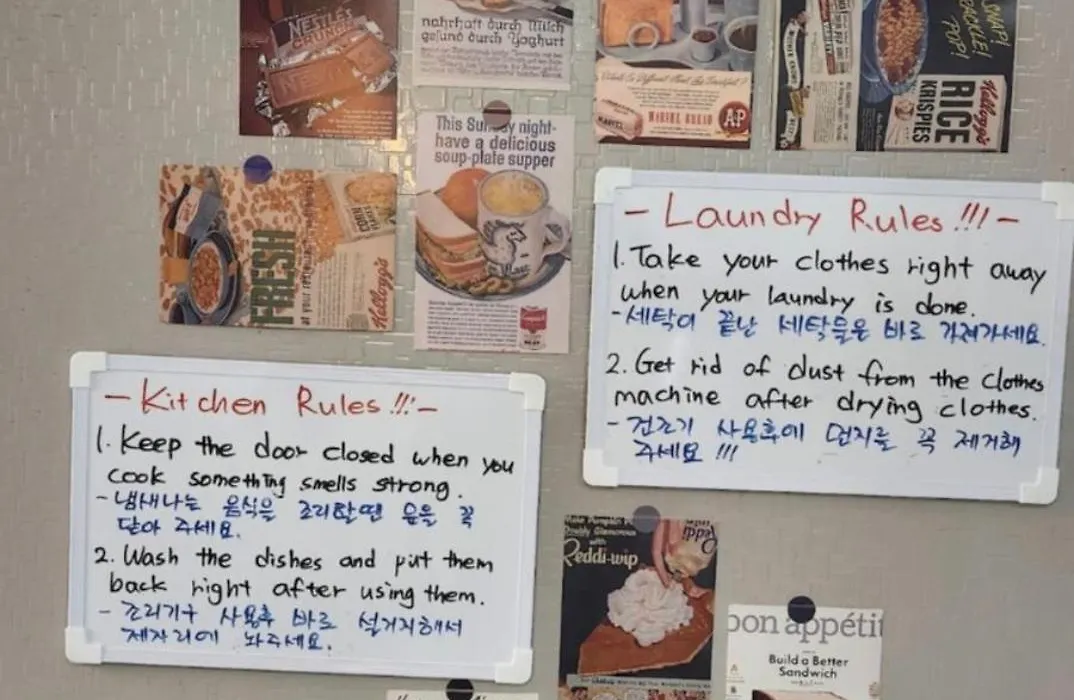 NESTLÉ'S
CRUNCH
nahrhaft durch Milch
gesund durch Yoghurt
MARVEL
A&P
SNAP!
CRACKLE!
POP!
Kellogg's
RICE
KRISPIES
This Sunday night-
have a delicious
soup-plate supper
Campbell's
FRESH
at your restaurant
CORN
FLAKES
Kellogg's
- Laundry Rules !!! -
1. Take your clothes right away
when your laundry is done.
- 세탁이 끝난 세탁물은 바로 가져가세요.
2. Get rid of dust from the clothes
machine after drying clothes.
- 건조기 사용후에 먼지를 꼭 제거해
주세요 !!!
- Kitchen Rules !!! -
1. Keep the door closed when you
cook something smells strong.
- 냄새나는 음식을 조리할땐 문을 꼭
닫아 주세요.
2. Wash the dishes and put them
back right after using them.
- 조리기구 사용후 바로 설거지해서
제자리에 놔주세요.
Make Pumpkin
Doubly Glamorous
with
Reddi-wip
bon appétit
Build a Better
Sandwich